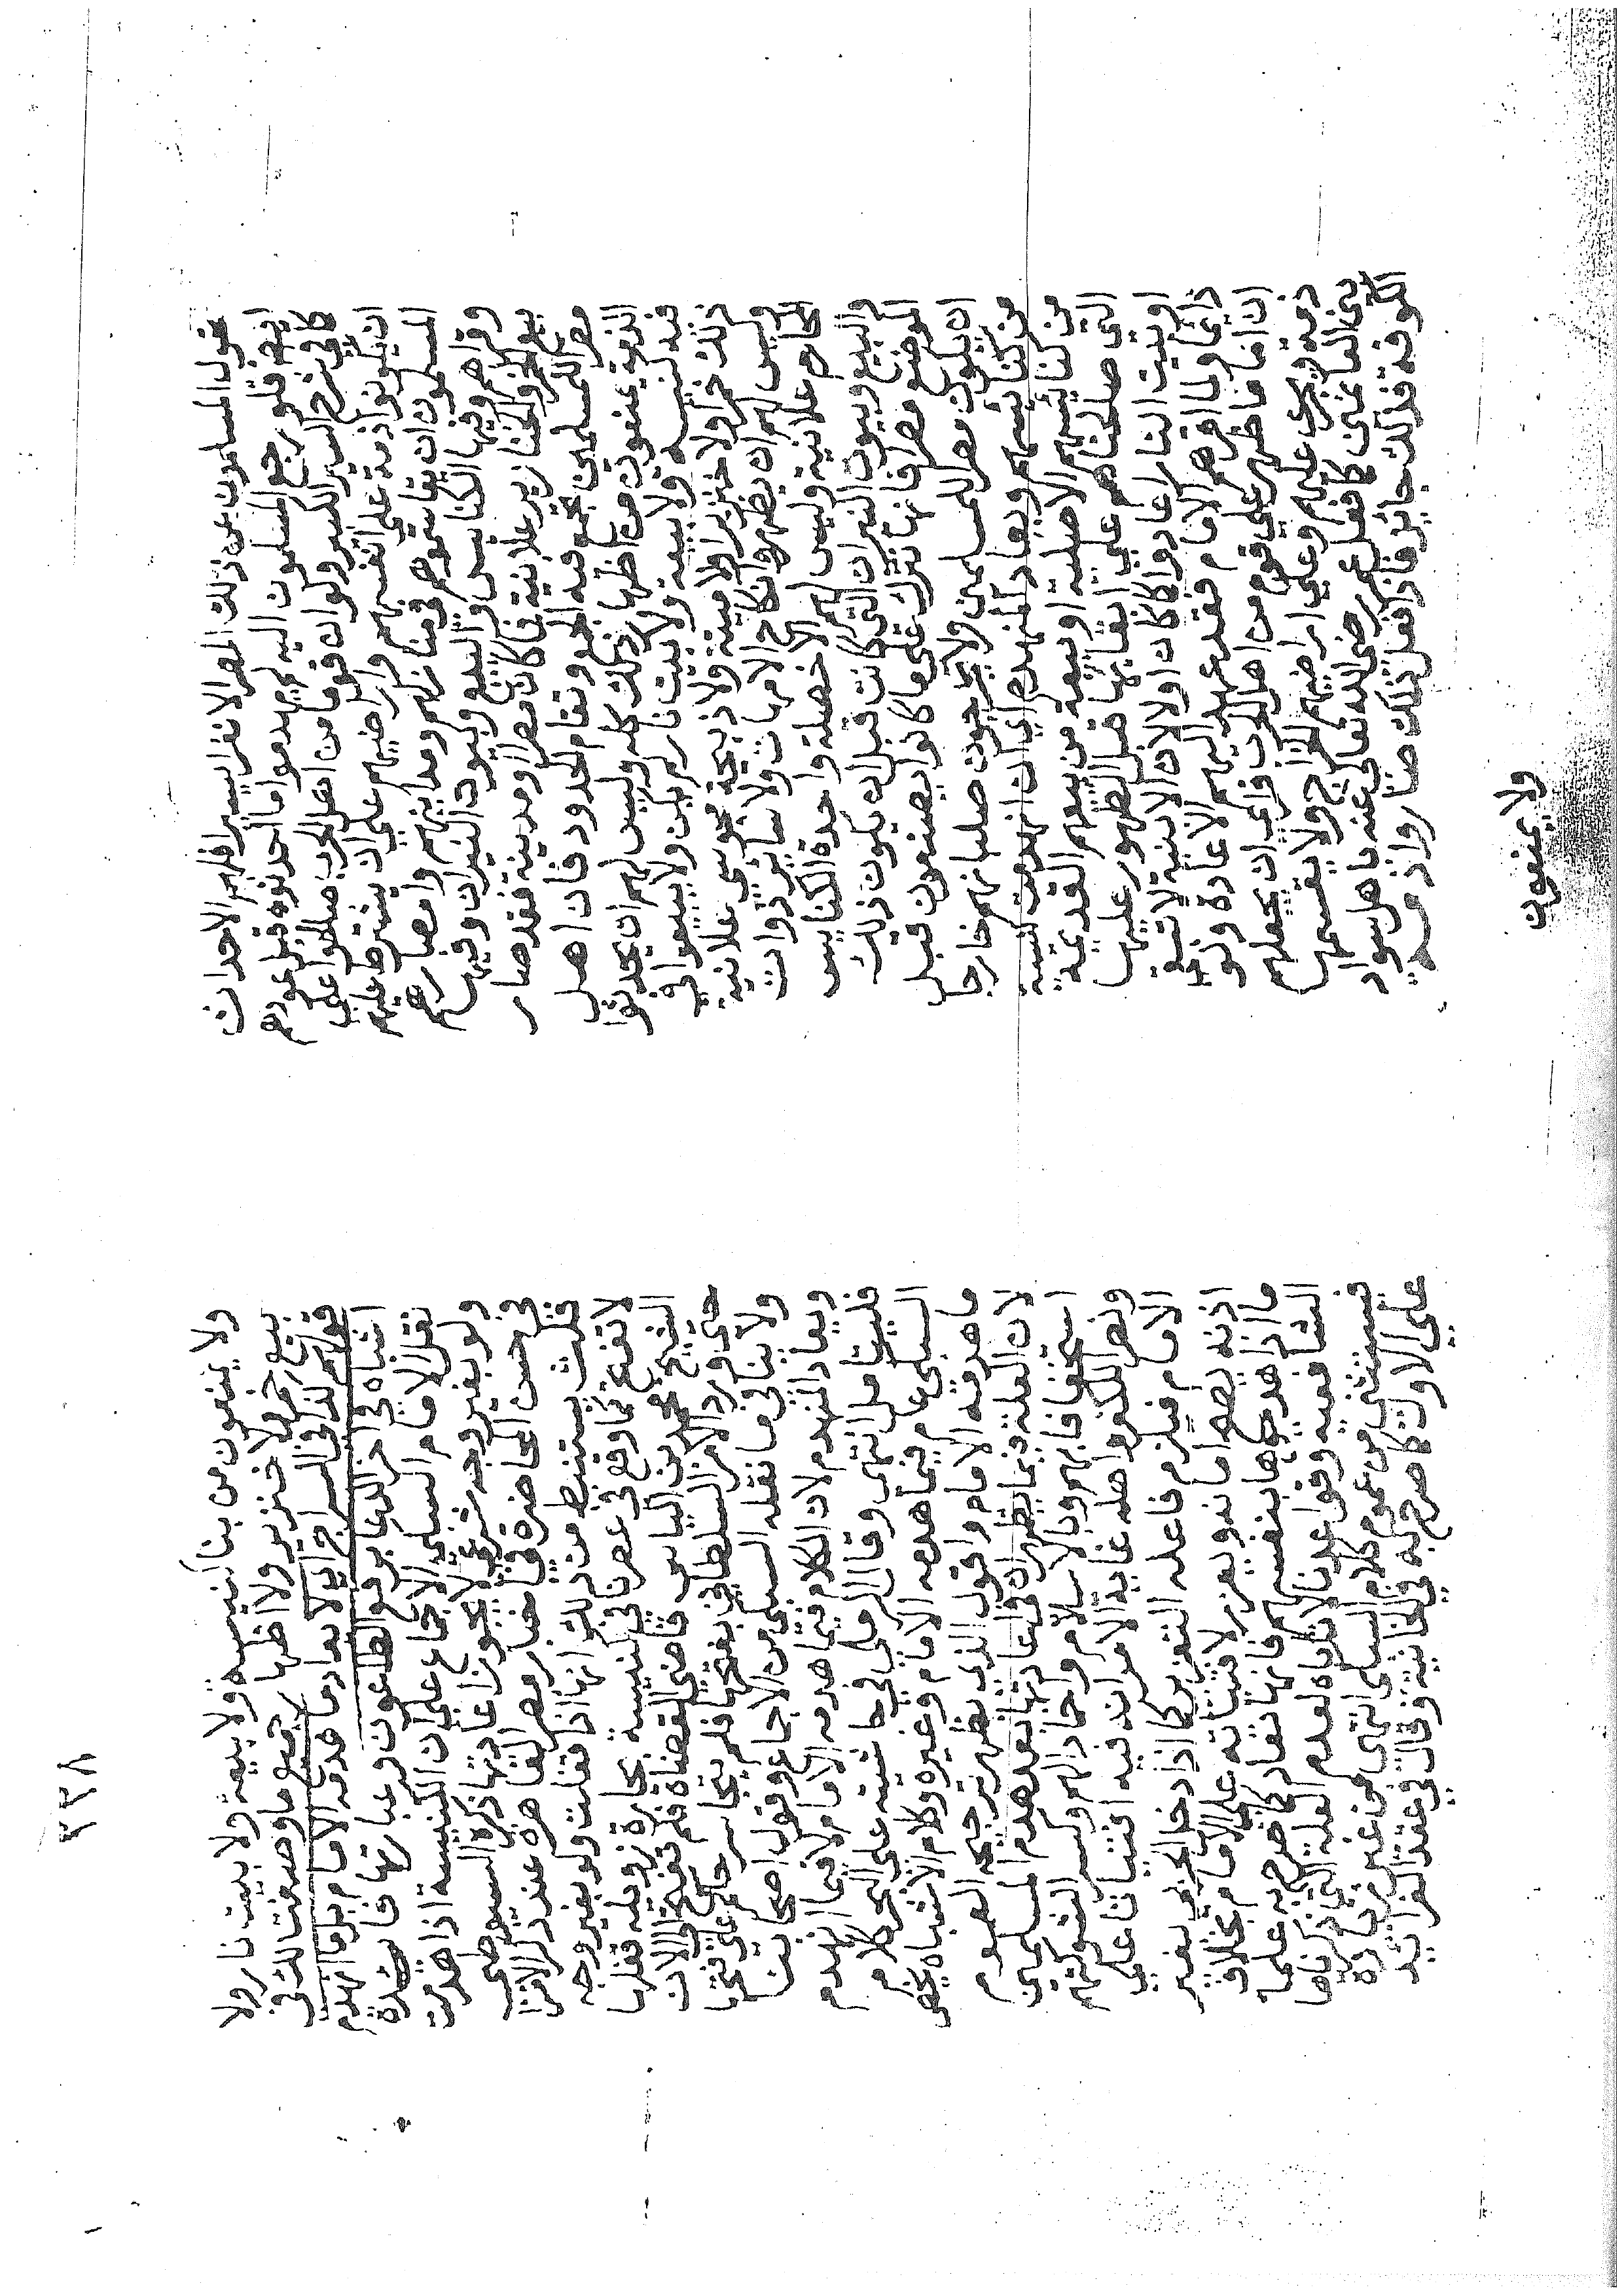 تحول المسلمون عن ذلك المصر الا نفرا يسيرا فلهم الاحداث
ايضا فلو رجع المسلمون اليه لم يهدموا ما احدثوه قبل عودهم
كما في شرح السير الكبير ولو ان قوما من اهل الحرب صالحوا على
ان يكونوا ذمة على انفسهم واراضيهم على ان يشترط عليهم
المسلمون ان يقاسموهم في منازلهم ومداينهم وامصارهم
وقراهم وفيها الكنايس والبيع وبيوت النيران وفيها
بيع الخمر والخنازير علانية فما كان مصرا او مدينة فقد صار
مصرا للمسلمين تجمع فيه الجمع وتقام الحدود فان اهل
الذمة يمنعون من اظهار ذلك كله وليس لهم ان يحدثوا
فيه كنيسة ولا بيعة ولا بيت نار لم يكن ولا يبيعوا في
ذلك خمرا ولا خنزيرا ولا ميتة ولا ذبيحة مجوسي علانية
وليس لهم ان يظهروا نكاح الامهات ولا ساير ذوات
المحارم علانية وليس لهم الا خصلة واحدة الكنايس
والبيع وبيوت النيران التي كانت قبل ان يكون ذلك
الموضع مصرا فانها تترك على ما كانوا يصنعون قبل
ان يكون مصرا للمسلمين ولا يخرجون صلبانهم خارجا
من كنايسهم ويعاد المنهدم اي ان انهدمت كنيسة
من كنايسهم الاصلية او بيعة من بيعهم القديمة
التي صالحناهم على ابقائها قبل الظهور عليها
او بيت النار اعادوا كما كان اولا لان الابنية لا تبقى
دائما ولما اقرهم الامام فقد عهد اليهم الاعادة ولو
ان اماما ظهر على قوم من اهل الحرب فراى ان يجعلهم
ذمة ويجري عليهم وعلى اراضيهم الخراج ولا يقسمها
بين الغانمين كما فعل عمر رضي الله تعالى عنه باهل سواد
الكوفة فذلك جائز فاذا فعل ذلك صاروا ذمة
ولا يمنعون
٣٣٨
ولا يمنعون من بناء كنيسة ولا بيعة ولا بيت نار ولا
بيع خمر ولا خنزير ولا اظهار جميع ما وصفت لك في
قراهم كذا في السراج اي لا يعاد ما هدمه الامام بل ما انهدم
اشباه في اخر الدعاء برفع الطاعون وعبارتها فايدة
نقل الامام السبكي الاجماع على ان الكنيسة اذا هدمت
ولو بغير وجه شرعي لا يجوز اعادتها ذكره السيوطي
في حسن المحاضرة في اخبار مصر القاهرة عند ذكر الامرا
قلت يستنبط من ذلك انها اذا قفلت ولو بغير وجه
لا تفتح كما وقع في عصرنا في كنيسة بحارة زويلة قفلها
الشيخ محمد بن الياس قاضي القضاة فلم تفتح الى الان
حتى ورد الامر السلطاني بفتحها فلم يتجاسر حاكم على فتحها
ولا ينافي ما نقله السبكي من الاجماع وقول اصحابنا
ويعاد المنهدم لان الكلام فيما هدمه الامام لا فيما انهدم
فليتامل انتهى وقال الرملي في حاشيته على البحر كلام
السبكي عام فيما هدمه الامام وغيره وكلام الاشباه يخص
ما هدمه الامام واقول الذي يظهر ترجيحه العموم
لان العلة فيما يظهر ان في اعادتها بعد هدم المسلمين
استخفافا بهم وبالاسلام واخمادا لهم وكسرا لشوكتهم
ونصرا للكفر واهله غاية الامر ان فيه افتياتا على
الامام فيلزم فاعله التعزير كما اذا ادخل الحربي بغير
اذنه يصح امانه ويعزر لافتياته على الامام بخلاف
ما اذا هدموها بانفسهم فانها تعاد كما صرح به علماء
الشافعية وقواعدنا لا تاباه لعدم العلة التي ذكرناها
فيستثنى من عموم كلام السبكي انتهى من غير زيادة
على الاول كما صرح به في الخانية وقال في عقد الفرايد